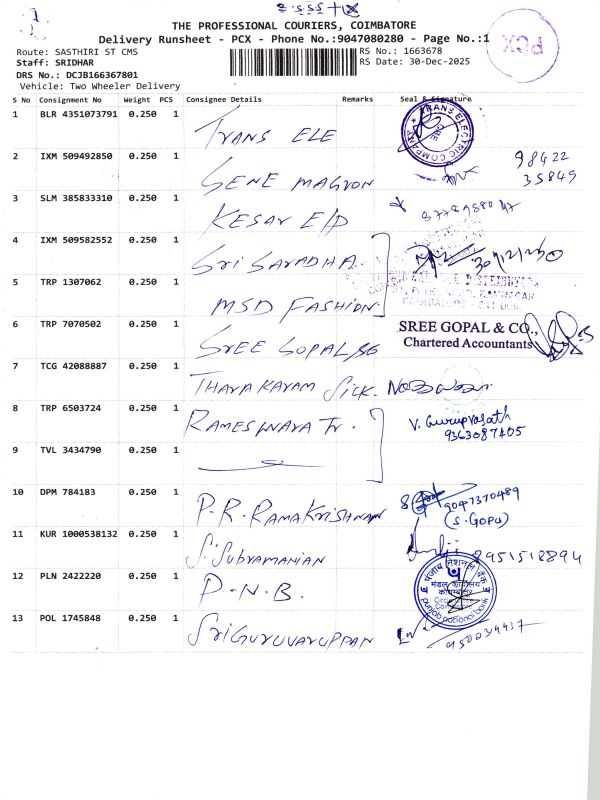 THE PROFESSIONAL COURIERS, COIMBATORE
Delivery Runsheet - PCX - Phone No.:9047080280 - Page No.:1
PCX
Route: SASTHIRI ST CMS
RS No.: 1663678
Staff: SRIDHAR
RS Date: 30-Dec-2025
DRS No.: DCJB166367801
Vehicle: Two Wheeler Delivery
S No Consignment No Weight PCS Consignee Details Remarks Seal & Signature
1 BLR 4351073791 0.250 1 TRANS ELE
TRANS ELECTRIC COMPANY
2 IXM 509492850 0.250 1 GENE MAGVON
98422
35849
3 SLM 385833310 0.250 1 KESAV E/P
4 IXM 509582552 0.250 1 Sri SARADHA
5 TRP 1307062 0.250 1 MSD FASHION
6 TRP 7070502 0.250 1 SREE GOPAL/SG
SREE GOPAL & CO.,
Chartered Accountants
7 TCG 42088887 0.250 1 THAYAKARAM Sick.
8 TRP 6503724 0.250 1 RAMESHWARA Tr.
V. Guruprasath
9363087405
9 TVL 3434790 0.250 1
10 DPM 784183 0.250 1 P.R. RAMAKRISHNAN
9047370489
(S. GOPU)
11 KUR 1000538132 0.250 1 S. SUBRAMANIAN
8951518894
12 PLN 2422220 0.250 1 P.N.B.
पंजाब नैशनल बैंक
मंडल कार्यालय
कोयम्बत्तूर
punjab national bank
13 POL 1745848 0.250 1 SRIGURUVARUPPAN